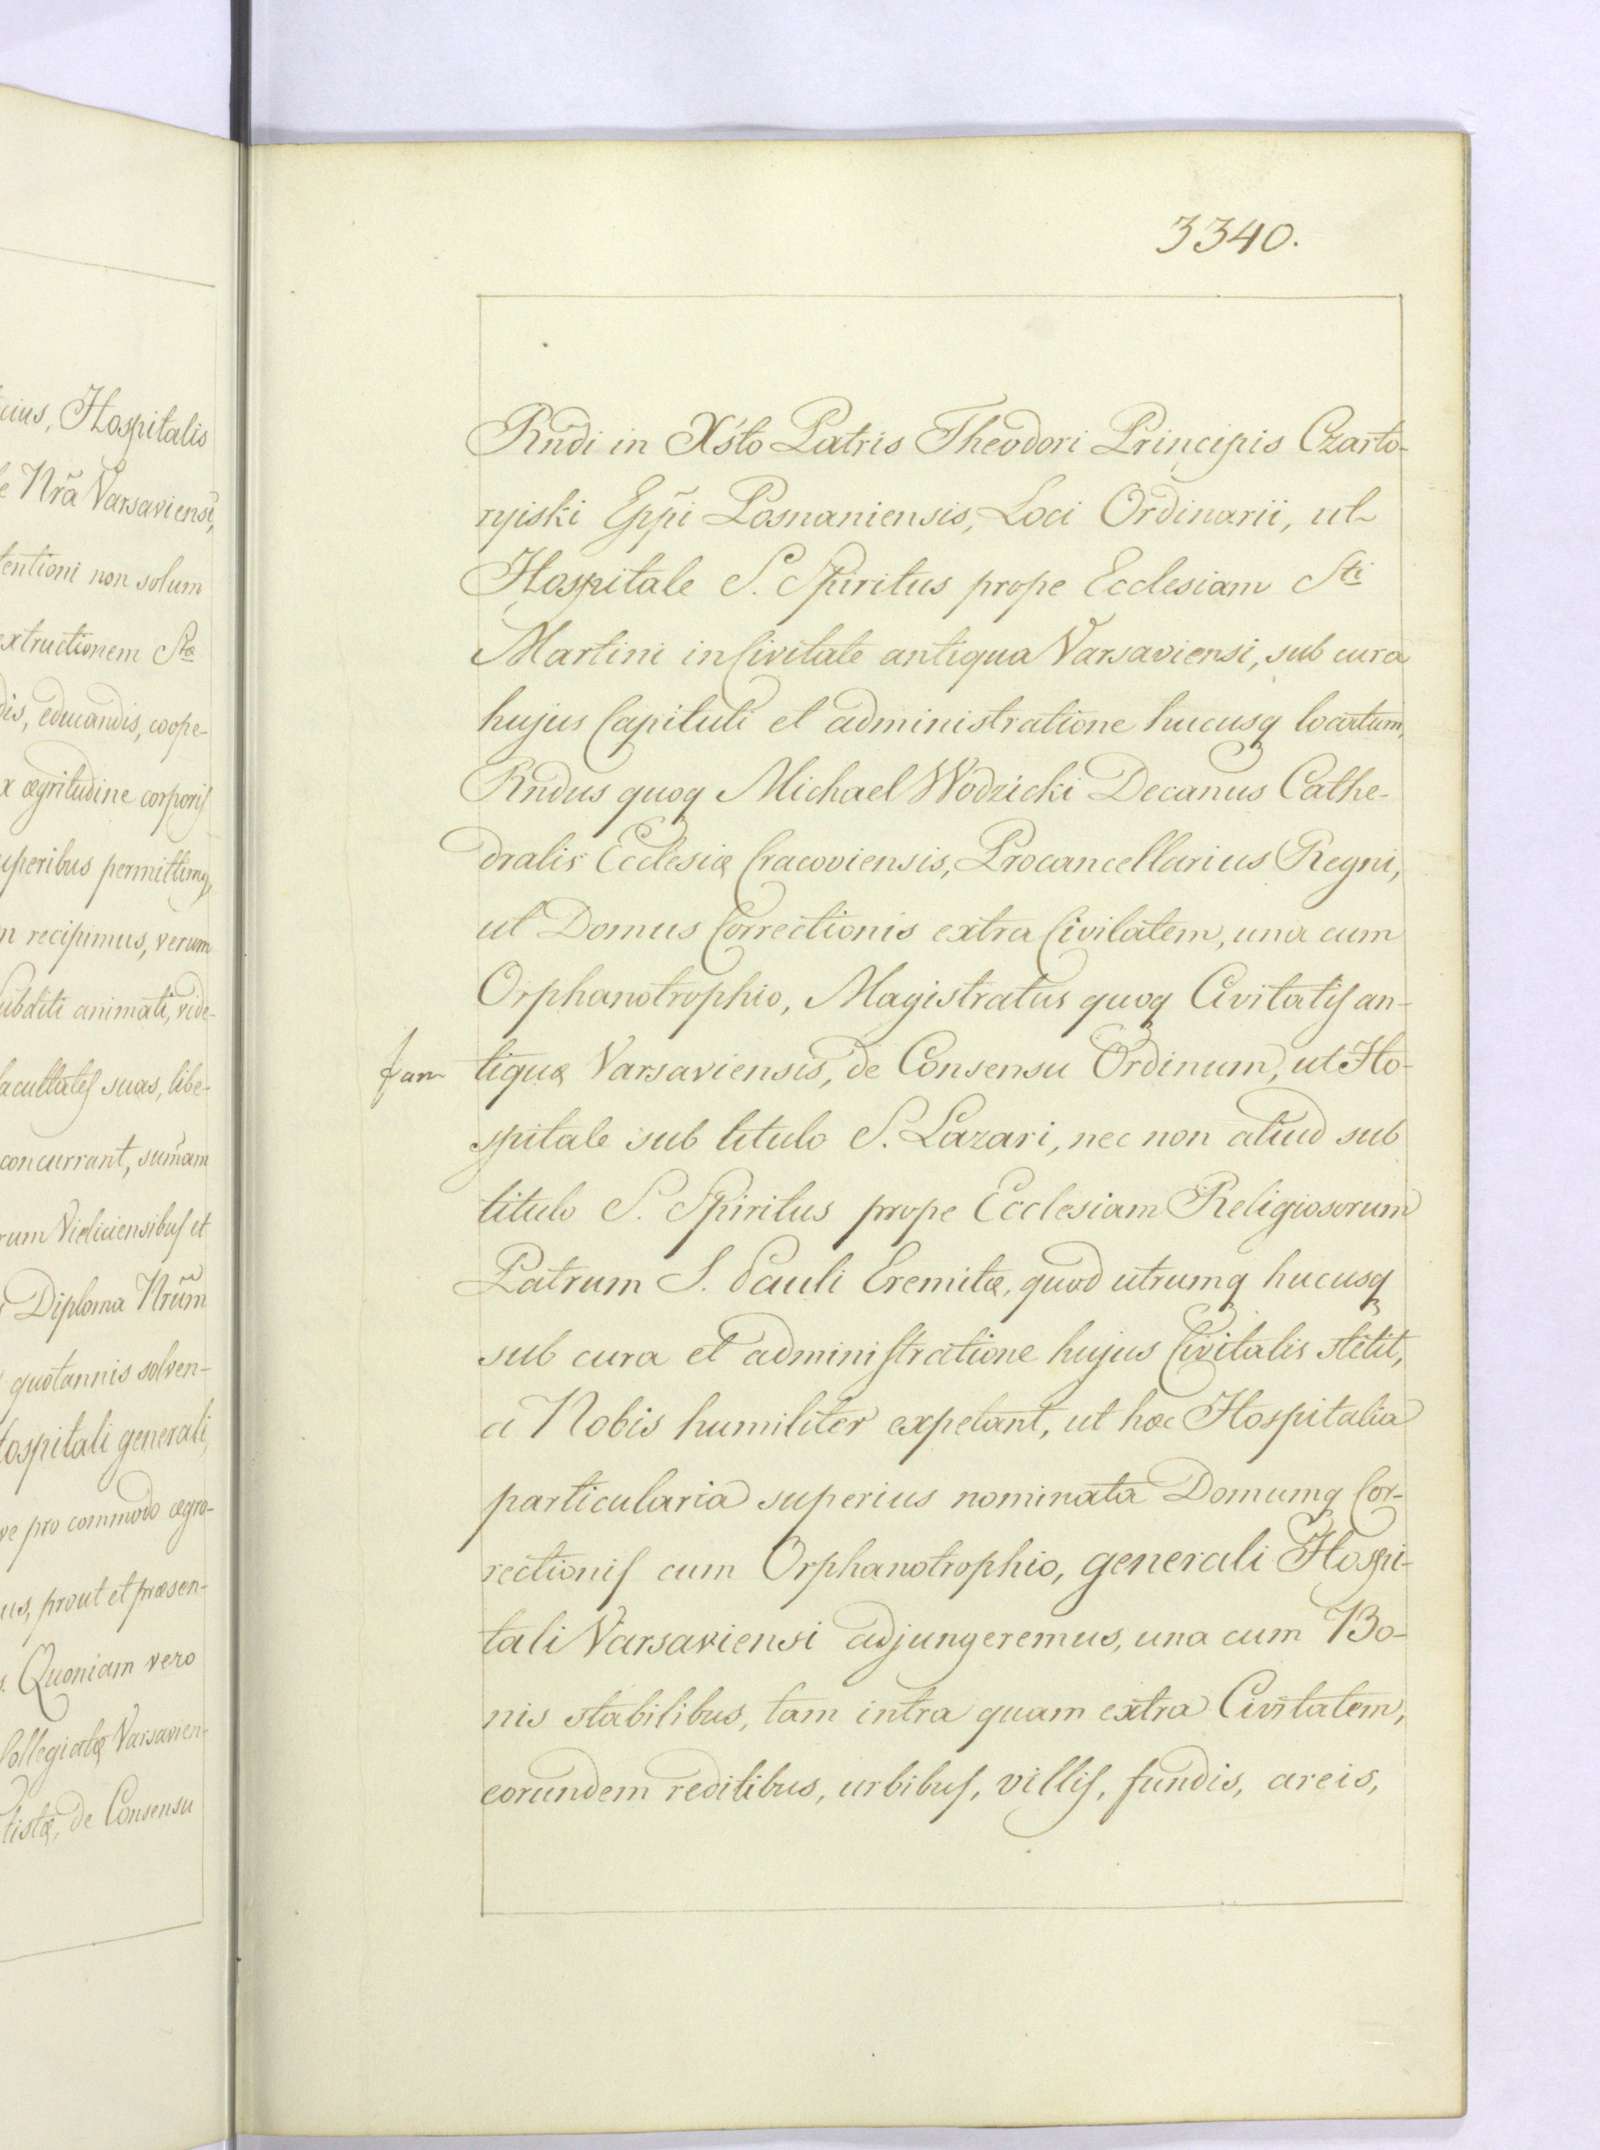 cius, Hospitalis
Nr̃a Varsaviensi,
tentioni non solum
extructionem Stæ
dis, educandis, coope-
x ægritudine corporis
uperibus permittimq,
n recipimus, verum
subditi animati, vide-
facultates suas, libe-
concurrant, sum̃am
rum Vieliciensibus et
Diploma Nrũm
quotannis solven-
Hospitali generali,
ve pro commodo ægro-
us, prout et præsen-
s. Quoniam vero
Collegiatæ Varsavien-
tistæ, de Consensu
3340.
Rñdi in Xs̃to Patris Theodori Principis Czarto-
ryiski Epp̃i Posnaniensis, Loci Ordinarii, ut
Hospitale S. Spiritus prope Ecclesiam Sti
Martini in Civitate antiqua Varsaviensi, sub cura
hujus Capituli et administratione hucusq locatum,
Rndus quoq Michael Wodzicki Decanus Cathe-
dralis Ecclesiæ Cracoviensis, Procancellarius Regni,
ut Domus Correctionis extra Civitatem, una cum
Orphanotrophio, Magistratus quoq Civitatis an-
tiquæ Varsaviensis, de Consensu Ordinum, ut Ho-
spitale sub titulo S. Lazari, nec non aliud sub
titulo S. Spiritus prope Ecclesiam Religiosorum
Patrum S. Pauli Eremitæ, quod utrumq hucusq
sub cura et administratione hujus Civitatis stetit,
a Nobis humiliter expetant, ut hæc Hospitalia
particularia superius nominata Domumq Cor-
rectionis cum Orphanotrophio, generali Hospi-
tali Varsaviensi adjungeremus, una cum Bo-
nis stabilibus, tam intra quam extra Civitatem,
eorundem reditibus, urbibus, villis, fundis, areis,